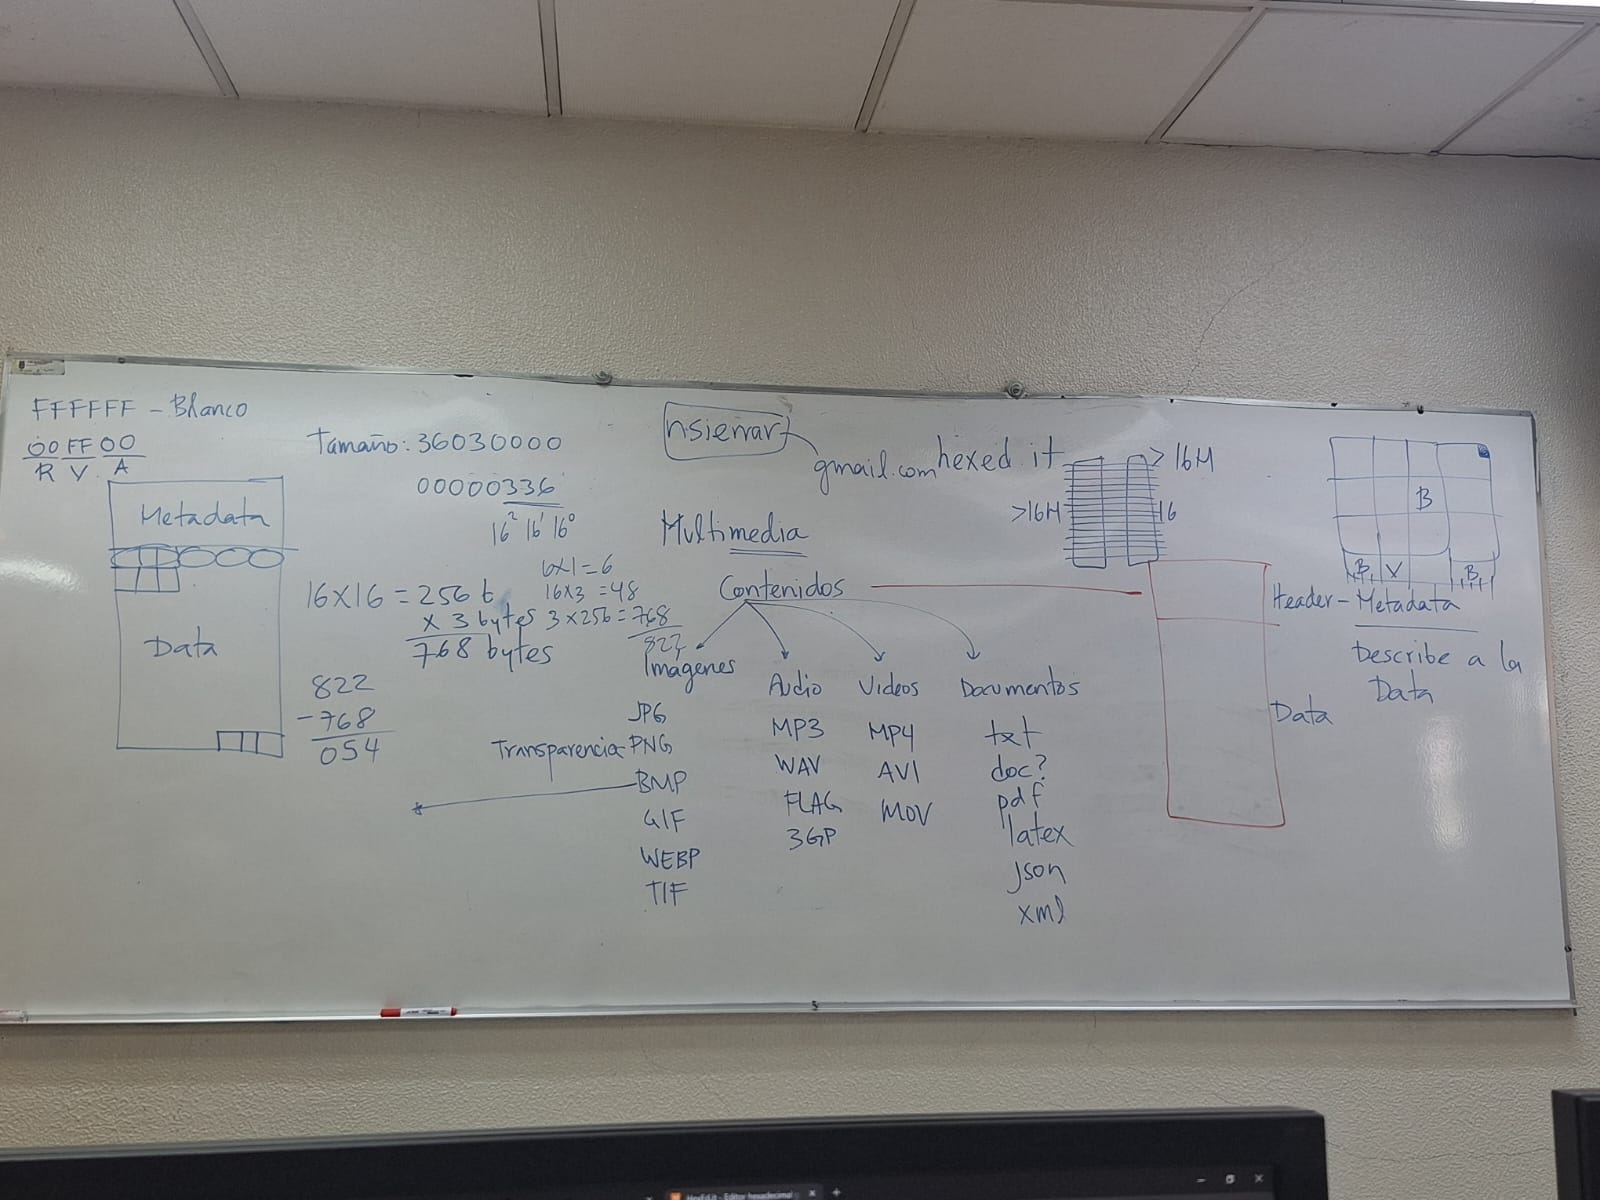 FFFFFF - Blanco
00 FF 00
R V A
Metadata
Data
Tamaño: 36030000
00000336
16² 16¹ 16⁰
6x1=6
16x3=48
3x256=768
822
16x16=256 b
x 3 bytes
768 bytes
822
-768
054
gmail.com
hexed.it
>16M
>16M
16
Multimedia
Contenidos
Imagenes
JPG
Transparencia PNG
BMP
GIF
WEBP
TIF
Audio
MP3
WAV
FLAG
3GP
Videos
MP4
AVI
MOV
Documentos
txt
doc?
pdf
latex
json
xml
B
B V B
Header - Metadata
Describe a la
Data
Data
HexEd.it - Editor hexadecimal